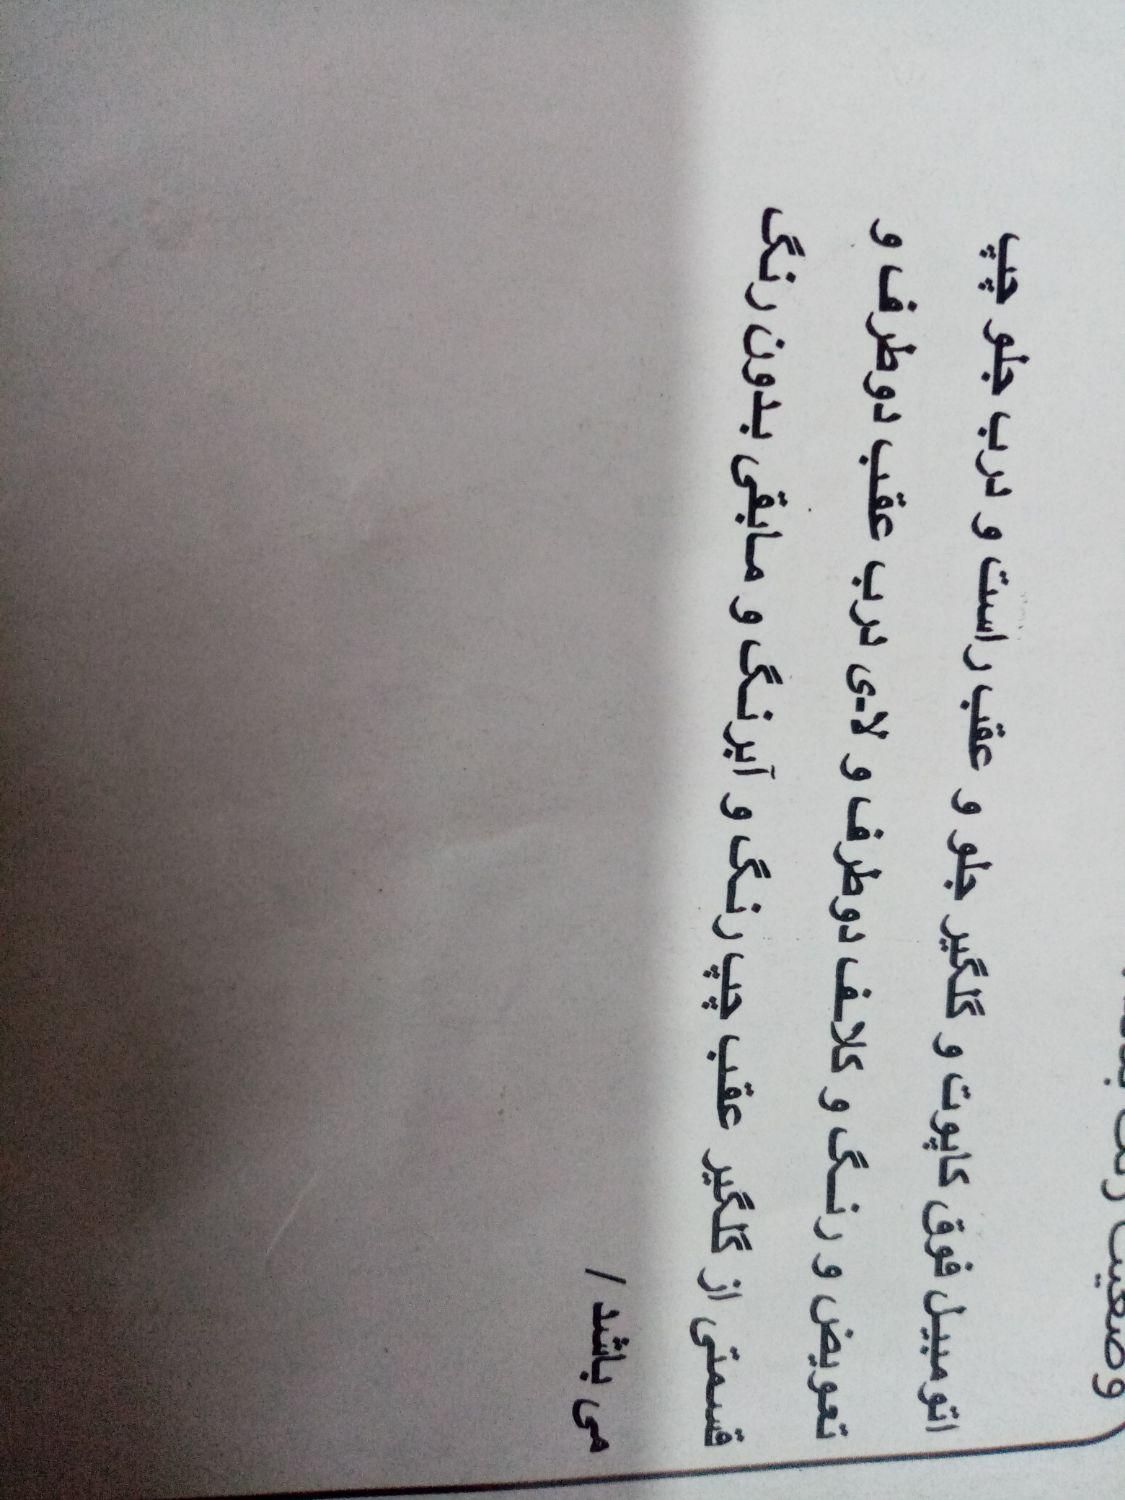 وضعیت رنگ بدنه
اتومبیل فوق کاپوت و گلگیر جلو و عقب راست و درب جلو چپ
تعویض و رنگ و کلاف دوطرف و لا-ی درب عقب دوطرف و
قسمتی از گلگیر عقب چپ رنگ و آبرنگ و مابقی بدون رنگ
می باشد /